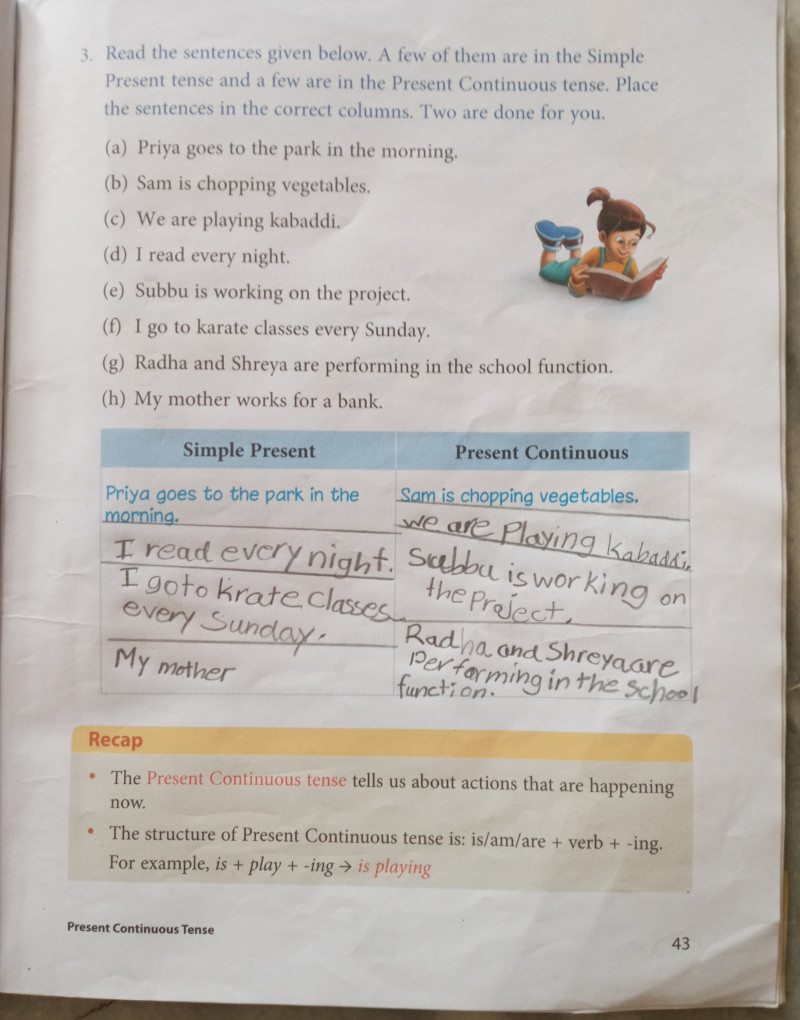 3. Read the sentences given below. A few of them are in the Simple
Present tense and a few are in the Present Continuous tense. Place
the sentences in the correct columns. Two are done for you.
(a) Priya goes to the park in the morning.
(b) Sam is chopping vegetables.
(c) We are playing kabaddi.
(d) I read every night.
(e) Subbu is working on the project.
(f) I go to karate classes every Sunday.
(g) Radha and Shreya are performing in the school function.
(h) My mother works for a bank.
Simple Present
Priya goes to the park in the
morning.
I read every night.
I goto krate classes
every Sunday.
My mother
Present Continuous
Sam is chopping vegetables.
we are Playing Kabaddi.
Subbu is working on
the Project.
Radha and Shreya are
Performing in the school
function.
Recap
• The Present Continuous tense tells us about actions that are happening
now.
• The structure of Present Continuous tense is: is/am/are + verb + -ing.
For example, is + play + -ing → is playing
Present Continuous Tense
43